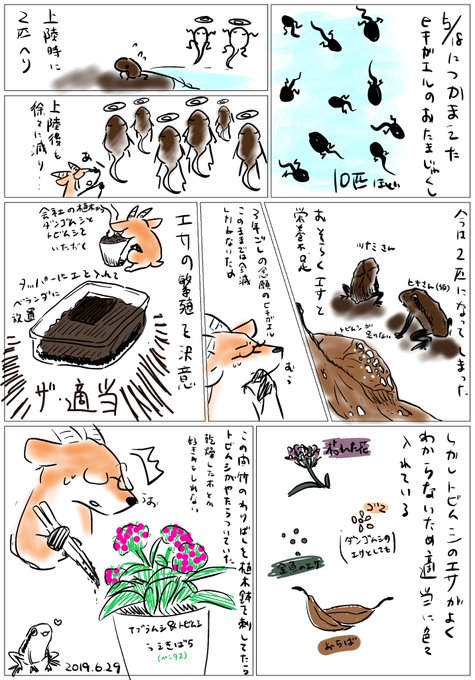 5/18につかまえた
ヒキガエルのおたまじゃくし
10匹ほど
上陸時に
2匹へり
上陸後も
徐々に減り…
あ
今は2匹になってしまった
ツナミさん
ヒキさん(仮)
おそらくエサで
栄養不足
トビムシが
足りない
3年ごしの念願のヒキガエル
このままでは全滅
しかねないため
むぅ
エサの繁殖を決意
会社の植木から
ダンゴムシと
トビムシを
いただく
タッパーに土を入れて
ベランダに
放置
ザ・適当
しかしトビムシのエサがよく
わからないため適当に色々
入れている
枯れた花
ゴマ
(ダンゴムシの
エサとしても)
金魚のエサ
おちば
この間竹のわりばしを植木鉢に刺してたら
トビムシがやたらついていた
乾燥した木とか
好きかもしれない
うぉっ
アブラムシ&トビムシ
うじゃばち
(ペンタス)
2019.6.29